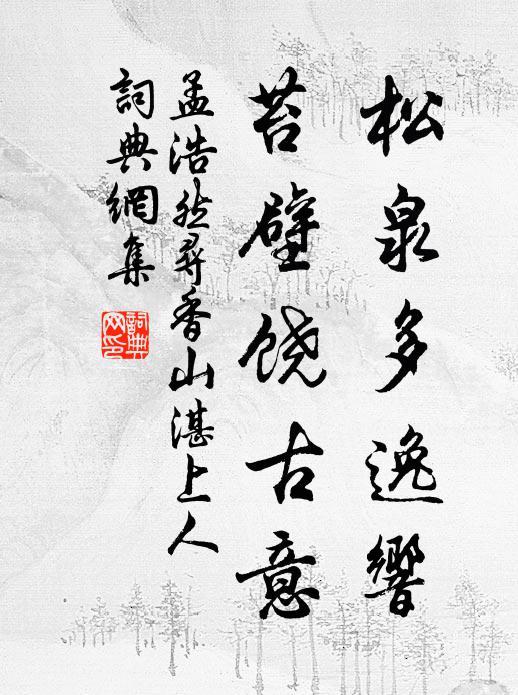 松泉多逸響
苔壁饶古意
孟浩然尋香山湛上人
詞典網集
詞典
网印